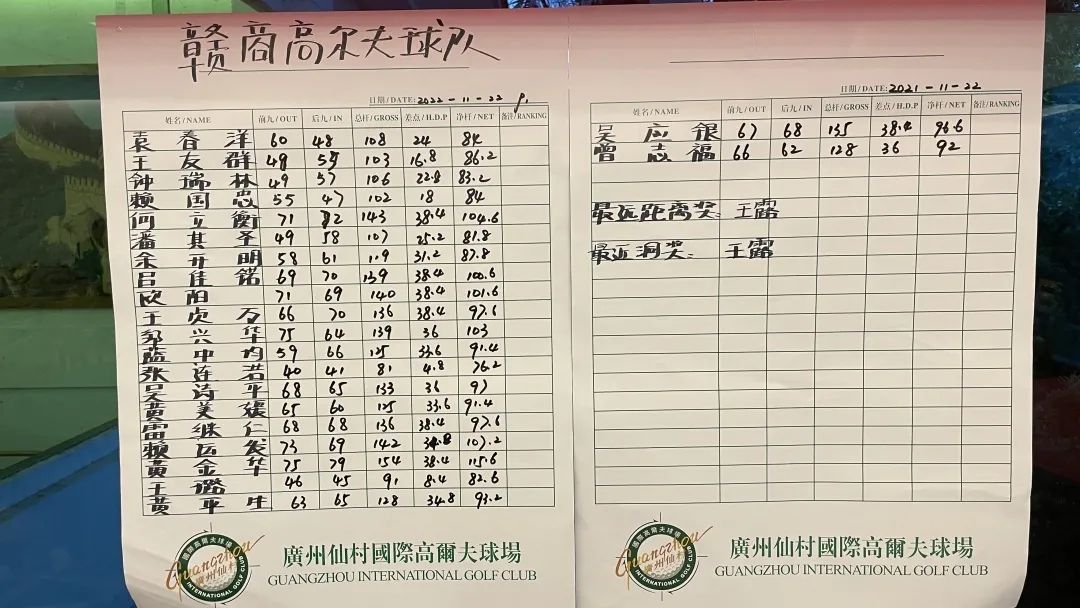 赣商高尔夫球队
日期/DATE: 2022-11-22 P1
姓名/NAME 前九/OUT 后九/IN 总杆/GROSS 差点/H.D.P 净杆/NET 备注/RANKING
袁春洋 60 48 108 24 84
王友群 48 55 103 16.8 86.2
钟瑞林 49 57 106 22.8 83.2
赖国忠 55 47 102 18 84
何立衡 71 72 143 38.4 104.6
潘其圣 49 58 107 25.2 81.8
余开明 58 61 119 31.2 87.8
吕佳锘 69 70 139 38.4 100.6
欧阳 71 69 140 38.4 101.6
王贞万 66 70 136 38.4 97.6
邹兴华 75 64 139 36 103
蓝中均 59 66 125 33.6 91.4
张连若 40 41 81 4.8 76.2
吴诗平 68 65 133 36 97
黄美 65 60 125 33.6 91.4
雷继仁 68 68 136 38.4 97.6
赖运发 73 69 142 34.8 107.2
黄金华 75 79 154 38.4 115.6
王璐 46 45 91 8.4 82.6
黄平生 63 65 128 34.8 93.2
國際高爾夫球場
Guangzhou
廣州仙村
INTERNATIONAL GOLF CLUB
廣州仙村國際高爾夫球場
GUANGZHOU INTERNATIONAL GOLF CLUB
日期/DATE: 2021-11-22
姓名/NAME 前九/OUT 后九/IN 总杆/GROSS 差点/H.D.P 净杆/NET 备注/RANKING
吴应银 67 68 135 38.4 96.6
曾志福 66 62 128 36 92
最远距离奖: 王露
最近洞奖: 王露
國際高爾夫球場
Guangzhou
廣州仙村
INTERNATIONAL GOLF CLUB
廣州仙村國際高爾夫球場
GUANGZHOU INTERNATIONAL GOLF CLUB